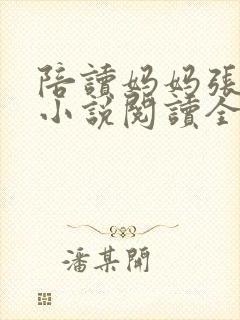 陪讀媽媽張
小說閱讀全
潘某開